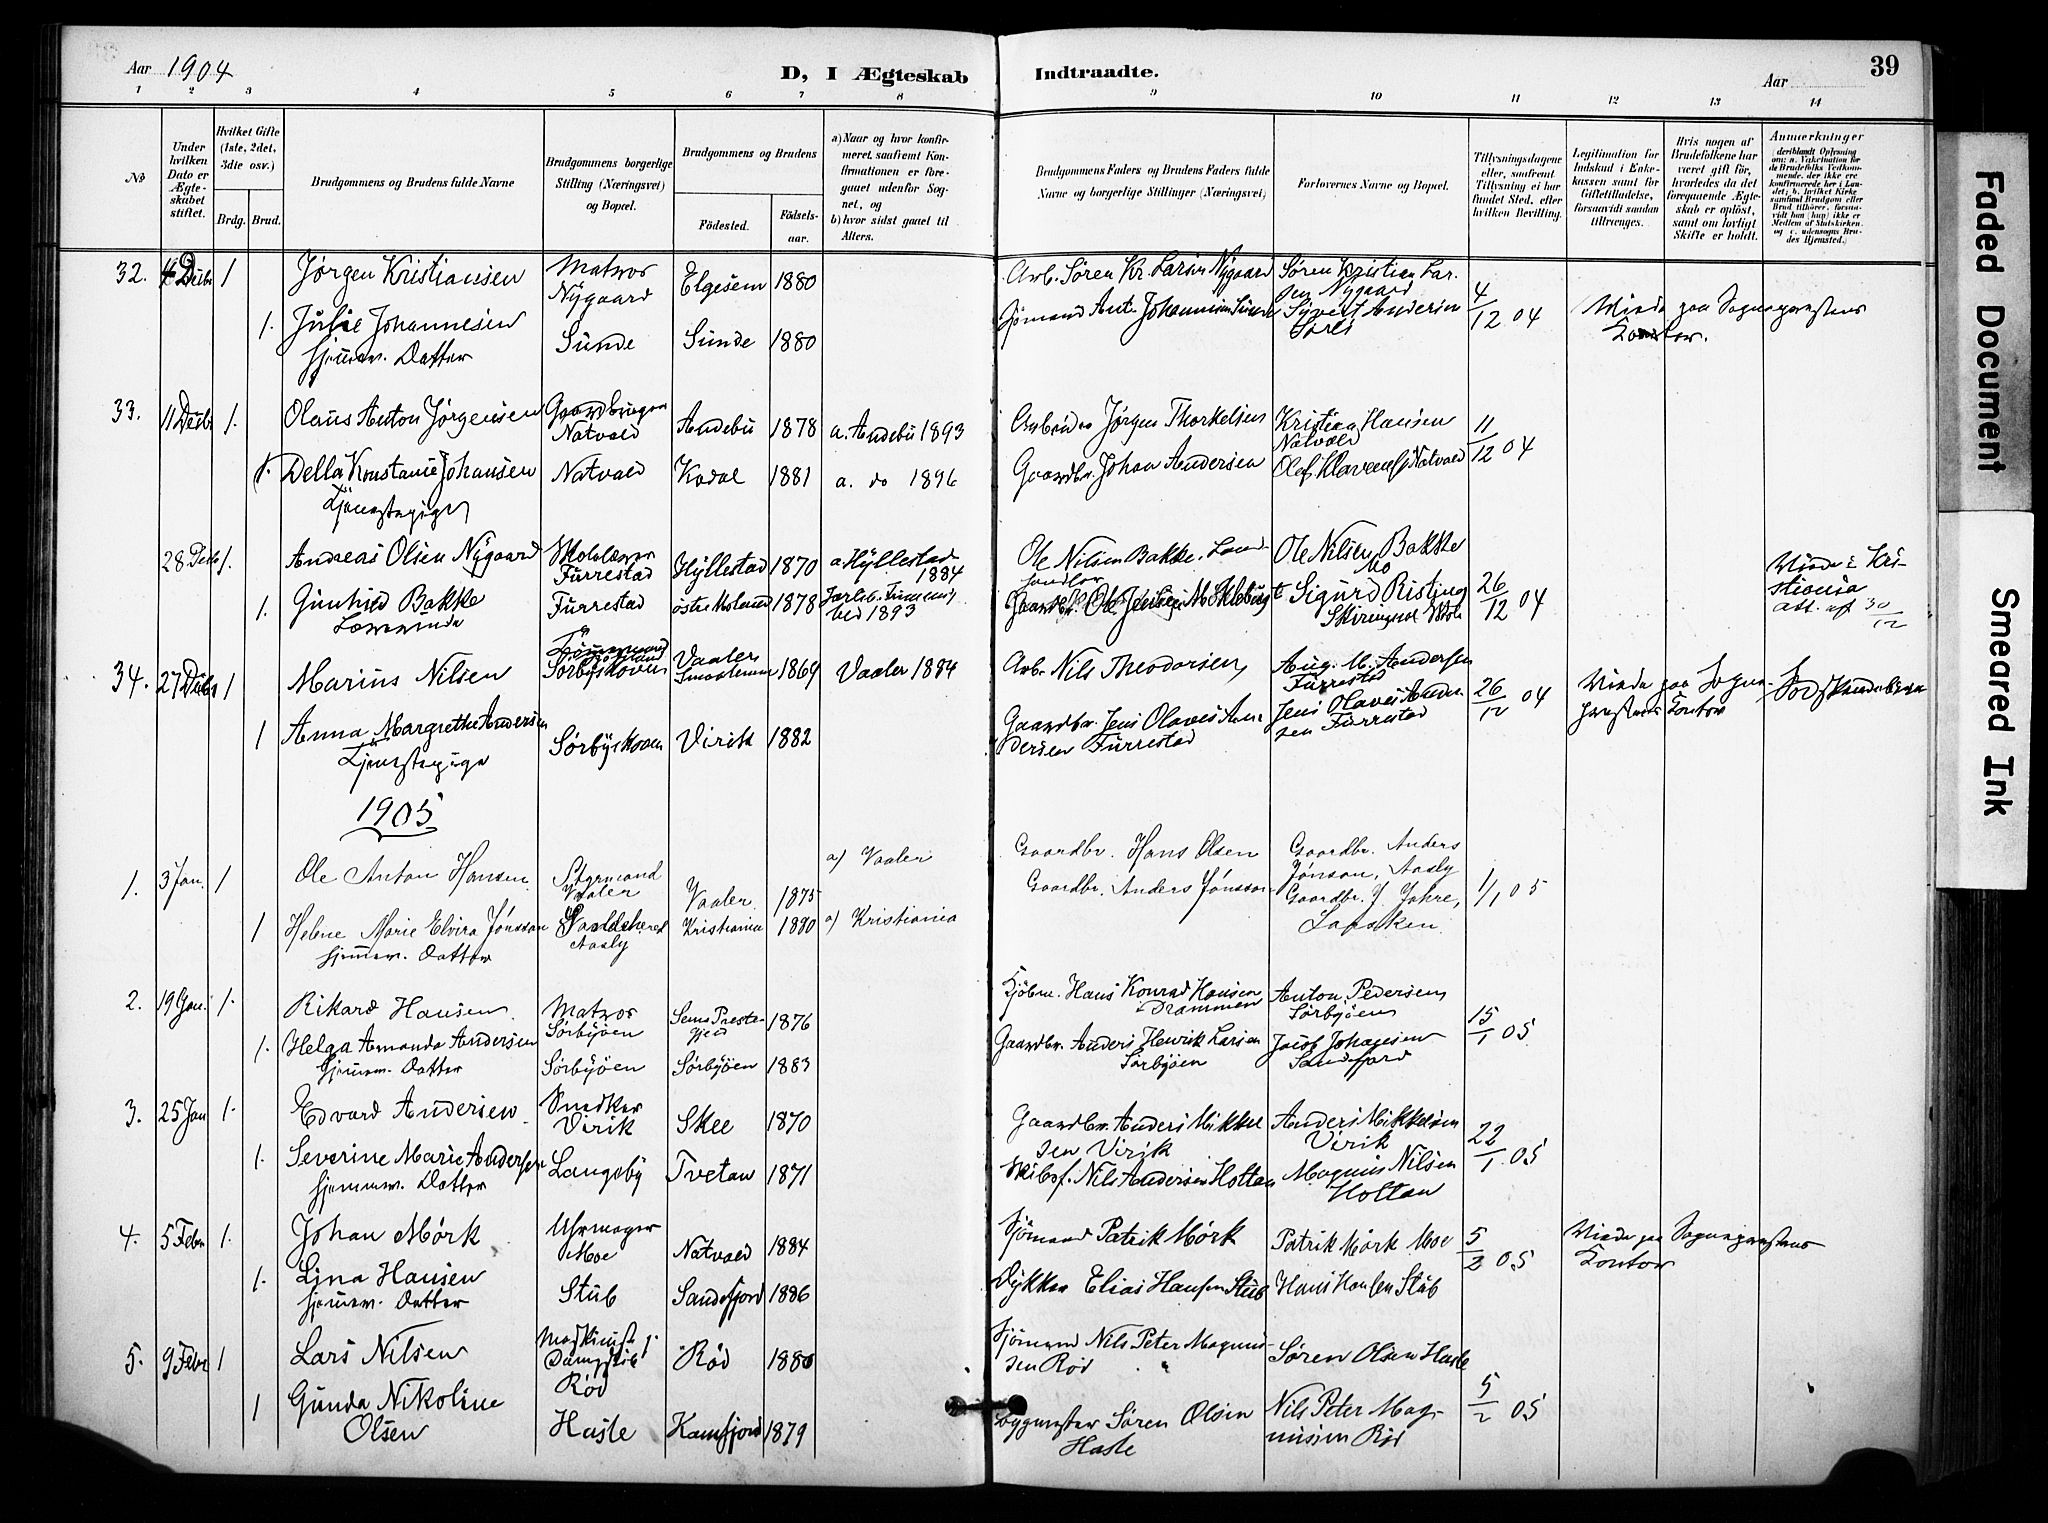 Aar 1904
D, I Ægteskab Indtraadte.
Aar
39
1 2 3 4 5 6 7 8 9 10 11 12 13 14
No
Under hvilken Dato er Ægteskabet stiftet.
Hvilket Gifte (1ste, 2det, 3die osv.)
Brdg. Brud.
Brudgommens og Brudens fulde Navne
Brudgommens borgerlige Stilling (Næringsvei) og Bopæl.
Brudgommens og Brudens
Födested.
Födselsaar.
a) Naar og hvor konfirmeret, saafremt Konfirmationen er foregaaet udenfor Sognet, og
b) hvor sidst gaaet til Alters.
Brudgommens Faders og Brudens Faders fulde Navne og borgerlige Stillinger (Næringsvei)
Forlovernes Navne og Bopæl.
Tillysningsdagene eller, saafremt Tillysning ei har fundet Sted, efter hvilken Bevilling.
Legitimation for Indskud i Enkekassen samt for Giftetilladelse, forsaavidt saadan tiltrænges.
Hvis nogen af Brudefolkene har været gift för, hvorledes da det foregaaende Ægteskab er oplöst, samt om lovligt Skifte er holdt.
Anmerkninger
32. Decbr 1 Jørgen Kristiansen Matros Nygaard Elgesem 1880 Arb. Søren Kr. Larsen Nygaard Søren Kristian Larsen Nygaard 4/12 04
1. Julie Johannesen hjemmev. Datter Sunde Sunde 1880 Sjömand Ant. Johannesen Sunde Syvert Andersen
Viede paa Sognepræstens Kontor.
33. 11 Decbr 1. Olaus Anton Jørgensen Gaardbruger Natvald Andebu 1878 a. Andebu 1893 Arbeider Jørgen Thorkelsen Kristian Hansen Natvald 11/12 04
1. Della Konstanse Johansen Tjenestepige Natvald Kodal 1881 a. do 1896 Gaardbr. Johan Andersen Olaf Klavensen Natvald
28 Decb 1. Andreas Olsen Nygaard Skolelærer Furrestad Hyllestad 1870 a. Hyllestad 1884 Ole Nilsen Bakke, Landhandler Ole Nilsen Bakke Mo
1. Gunhild Bakke Lærerinde Furrestad östre Moland 1878 1893 Gaardbr. Ole Jensen Møklebust Sigurd Risting Skiringssal Skole 26/12 04
Viede i Kristiania Att. af 30/12
34. 27 Decbr 1 Marius Nilsen Sørbyskoven Vaaler Smaalenene 1869 Vaaler 1884 Arb. Nils Theodorsen Aug. M. Andersen Furrestad 26/12 04
1 Anna Margrethe Andersen Tjenestepige Sørbyskoven Virik 1882 Gaardbr. Jens Olaves Andersen Furrestad Jens Olaves Andersen Furrestad
Viede paa Sognepræstens Kontor
1905
1. 3 Jan. 1 Ole Anton Hansen Styrmand Vaaler Vaaler 1875 a) Vaaler Gaardbr. Hans Olsen Gaardbr. Anders Jónsson, Aasly 1/1 05
1 Helene Marie Elvira Jónsson hjemmev. Datter Sandeherred Aasly Kristiania 1880 a) Kristiania Gaardbr. Anders Jónsson Gaardbr. J. Jahre,
2. 19 Jan. 1. Rikard Hansen Matros Sørbyøen Sems Prestegjeld 1876 Kjöbm. Hans Konrad Hansen i Drammen Anton Pedersen Sørbyøen 15/1 05
1. Helga Amanda Andersen hjemmev. Datter Sørbyøen Sørbyøen 1883 Gaardbr. Anders Henrik Larsen Sørbyøen Jacob Johansen Sandefjord
3. 25 Jan 1. Edvard Andersen Snedker Virik Skee 1870 Gaardbr. Anders Mikkelsen Virik Anders Mikkelsen Virik 22/1 05
1. Severine Marie Andersen hjemmev. Datter Langeby Tvetan 1871 Skibsf. Nils Andersen Holtan Magnus Nilsen Holtan
4. 5 Febr 1. Johan Mørk Uhrmager Moe Natvald 1884 Sjömand Patrik Mørk Patrik Mørk Moe 5/2 05
1. Lina Hansen hjemmev. Datter Stub Sandefjord 1886 Dykker Elias Hansen Stub Hans Hansen Stub
Viede paa Sognepræstens Kontor
5. 9 Febr 1 Lars Nilsen Maskinist Rød Rød 1880 Sjömand Nils Peter Magnussen Rød Søren Olsen Hasle
1 Gunda Nikoline Olsen Hasle Kamfjord 1879 Bygmester Søren Olsen Hasle Nils Peter Magnussen Rød 5/2 05
Faded Document
Smeared Ink